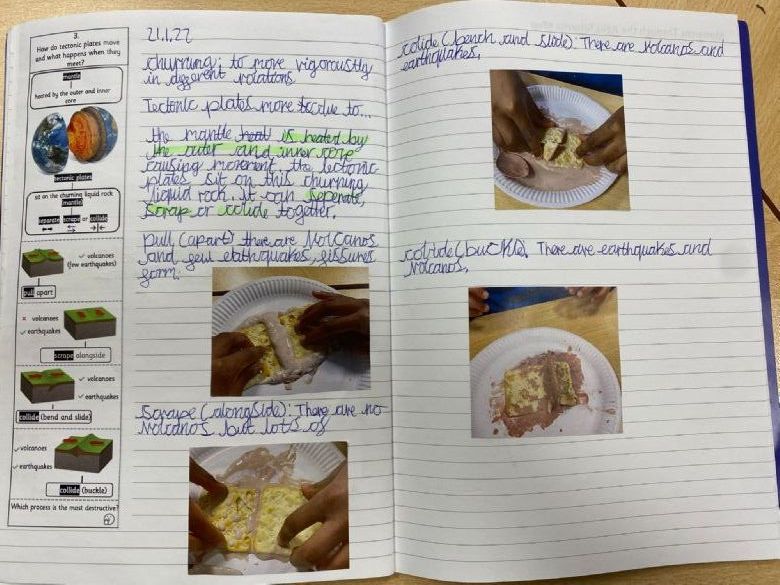 3.
How do tectonic plates move
and what happens when they
meet?
mantle
heated by the outer and inner
core
tectonic plates
sit on the churning liquid rock
(mantle)
separate scrape or collide
✓ volcanoes
(few earthquakes)
pull apart
x volcanoes
✓ earthquakes
scrape alongside
✓ volcanoes
✓ earthquakes
collide (bend and slide)
✓ volcanoes
✓ earthquakes
collide (buckle)
Which process is the most destructive?
21.1.22
churning: to move vigoroustly
in different rotations
Tectonic plates move to due to...
the mantle heat is heated by
the outer and inner core
causing movement the tectonic
plates sit on this churning
liquid rock. It can seperate,
scrap or colide together.
pull (apart) there are Volcanos
and few eathquakes, fissures
form.
scrape (alongside): There are no
Volcanos but lots of
colide (bench and slide): There are Volcanos and
earthquakes.
colide (buckle). There are earthquakes and
Volcanos.